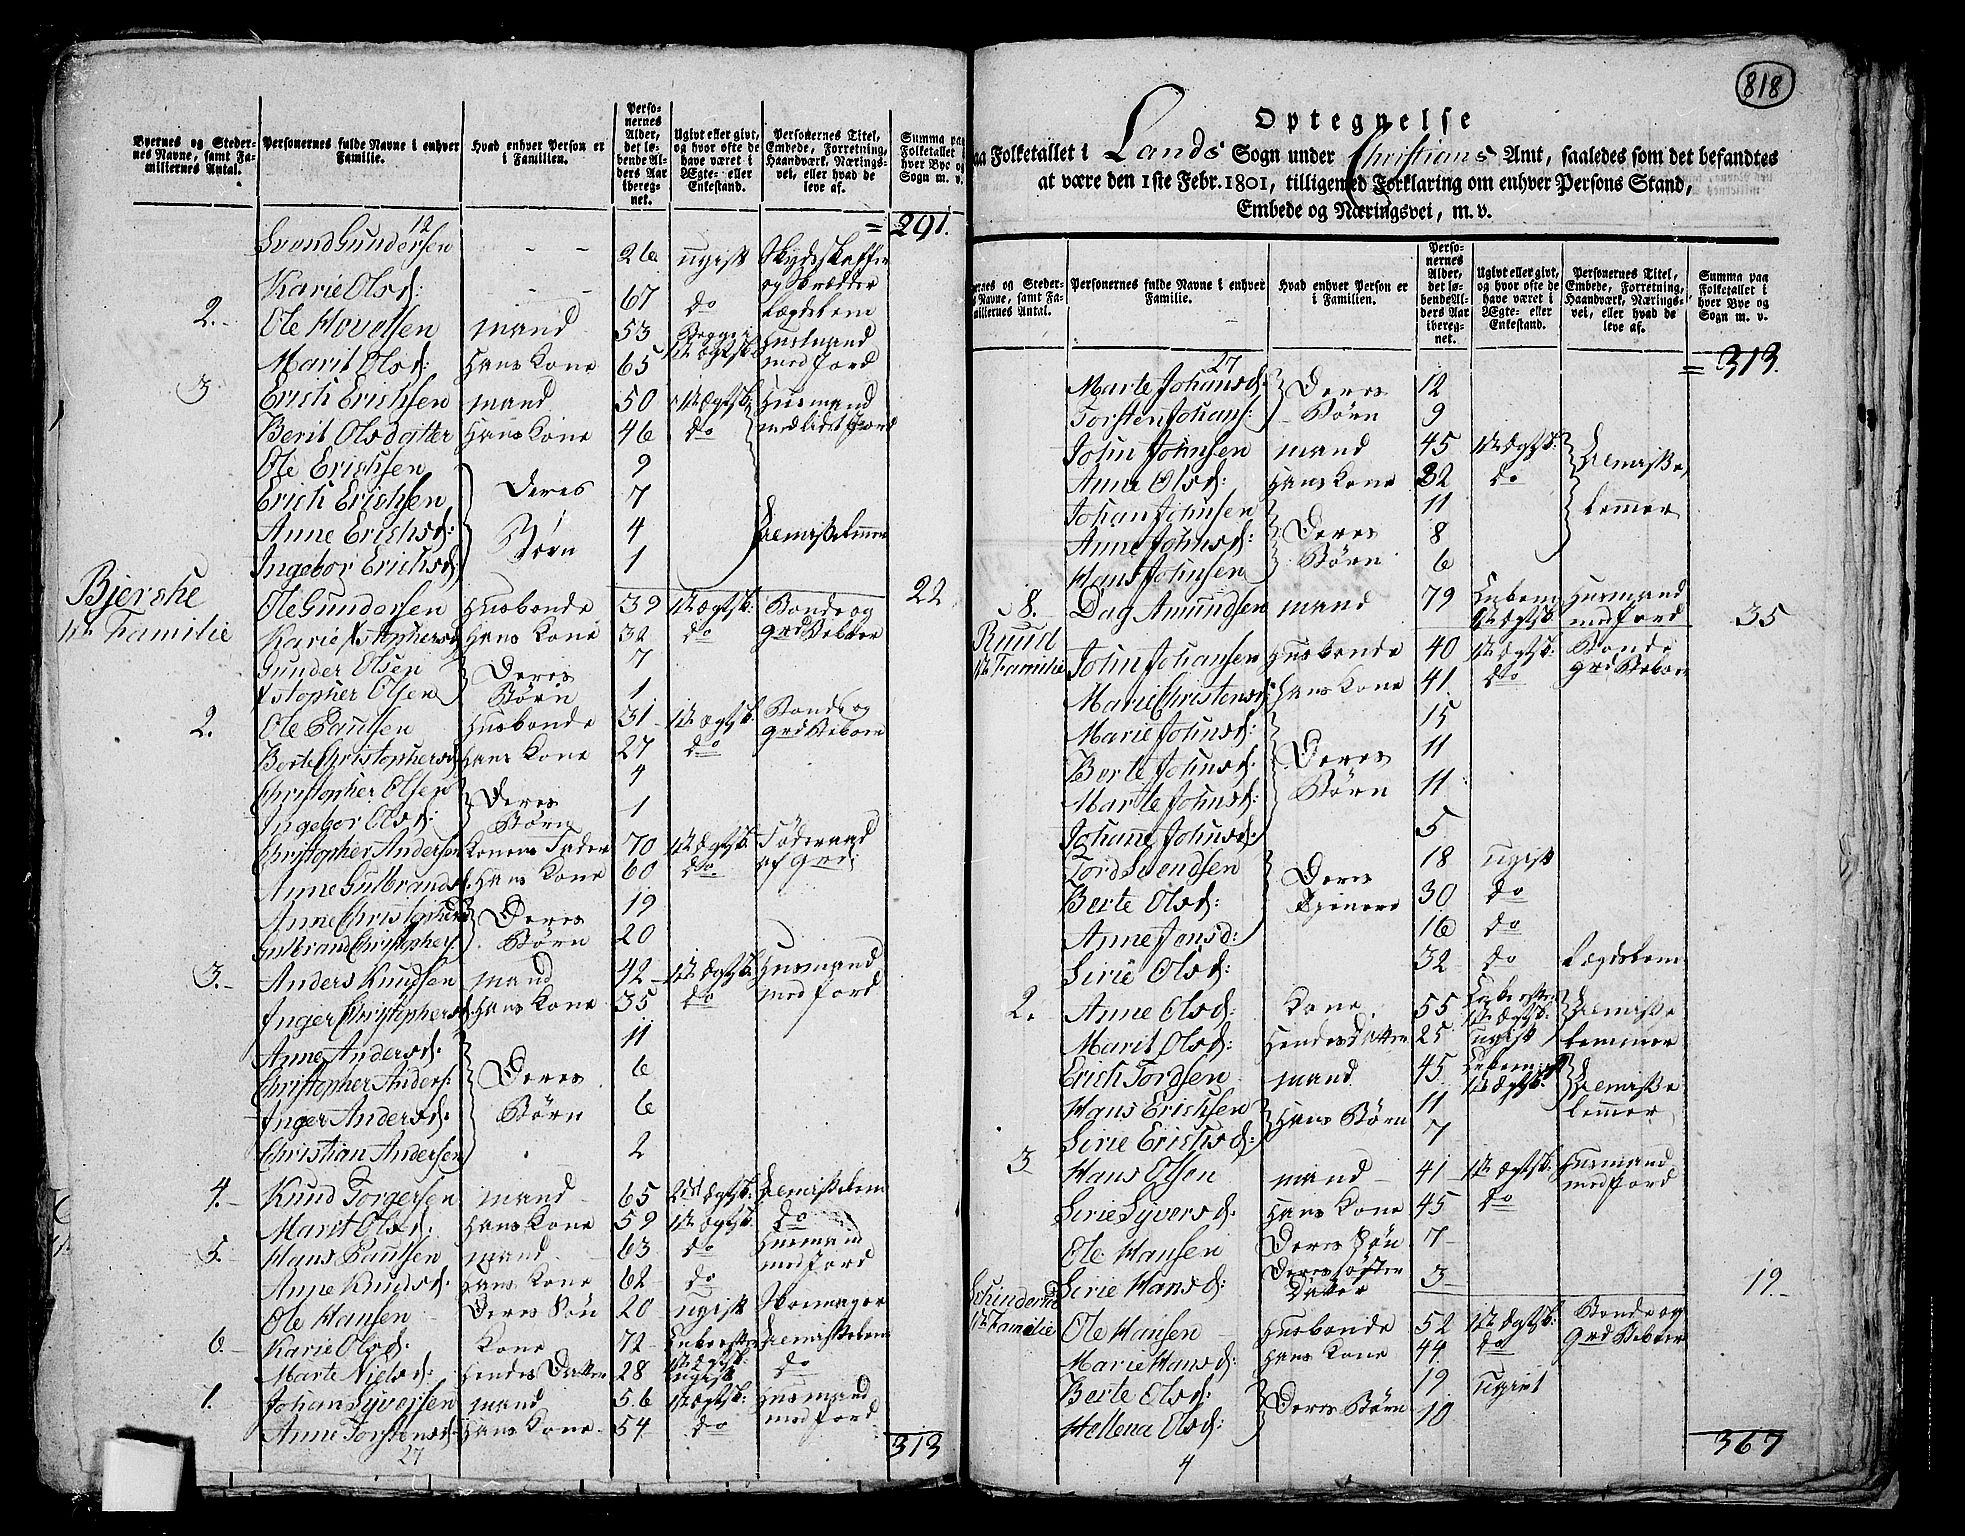 Byernes og Steder-
nes Navne, samt Fa-
miliernes Antal.
Personernes fulde Navne i enhver
Familie.
Hvad enhver Person er
i Familien.
Perso-
nernes
Alder,
det lø-
bende Al-
ders Aar
ibereg-
net.
Ugivt eller givt,
og hvor ofte de
have været i
Ægte- eller
Enkestand.
Personernes Titel,
Embede, Forretning,
Haandværk, Nærings-
vei, eller hvad de
leve af.
Summa paa
Folketallet i
hver Bye og
Sogn m. v.
12
= 291.
Svend Gundersen - - 26 ugift Skydskaffer
og Skrædder
Karie Olsd: - - 67 do Lægdslem
2. Ole Hovelsen mand 53 Begge i Huusmand
Marit Olsd: Hans Kone 65 1te Ægtsk: med Jord
3 Erich Erichsen mand 50 1te Ægtsk: Husmand
Berit Olsdatter Hans Kone 46 do med lidt Jord
Ole Erichsen 9
Erich Erichsen Deres 7
Anne Erichsd: Børn 4 Lemisselemmer
Ingebor Erichsd: 1
Bjerche Ole Gundersen Husbonde 39 1te Ægtsk: Bonde og 22
1te Familie Karie Xstophersd Hans Kone 32 do grdbeboer
Gunder Olsen Deres 7
Xstopher Olsen Børn 1
2. Ole Paulsen Husbonde 31 1te Ægtsk: Bonde og
Berte Christophersd Hans Kone 27 do grdbeboer
Christopher Olsen Deres 4
Ingebor Olsd: Børn 1
Christopher Andersen Konens Fader 70 1te Ægtsk: Føderaad
Anne Gulbrandsd: Hans Kone 60 do af grd:
Anne Christophersd Deres 19
Gulbrand Christophers: Børn 20
3. Anders Knudsen mand 42 1te Ægtsk: Husmand
Inger Christophersd: Hans Kone 35 do med Jord
Anne Andersd: 11
Christopher Anders: Deres 6
Inger Andersd: Børn 6
Christian Andersen 2
4. Knud Torgersen mand 65 2det Ægtsk: Lemisselem
Marit Olsd: Hans Kone 59 1te Ægtsk: do
5. Hans Paulsen mand 63 do Husmand
Anne Knudsd: Hans Kone 62 do med Jord
Ole Hansen Deres Søn 20 ugift Skoemager
6. Karie Olsd: Kone 72 Enke efter Lemisselem
1te Ægtsk:
Marte Nielsd: Hendes Datter 28 ugift do
1. Johan Syversen mand 56 1te Ægtsk: Husmand
Anne Torstensd: Hans Kone 54 do med Jord
27
313
818
Optegnelse
paa Folketallet i Lands Sogn under Christians Amt, saaledes som det befandtes
at være den 1ste Febr. 1801, tilligemed Forklaring om enhver Persons Stand,
Embede og Næringsvei, m. v.
Byernes og Steder-
nes Navne, samt Fa-
miliernes Antal.
Personernes fulde Navne i enhver
Familie.
Hvad enhver Person er
i Familien.
Perso-
nernes
Alder,
det lø-
bende Al-
ders Aar
ibereg-
net.
Ugivt eller givt,
og hvor ofte de
have været i
Ægte- eller
Enkestand.
Personernes Titel,
Embede, Forretning,
Haandværk, Nærings-
vei, eller hvad de
leve af.
Summa paa
Folketallet i
hver Bye og
Sogn m. v.
27
= 313.
Marte Johansd: Deres 12
Torsten Johans: Børn 9
John Johnsen mand 45 1te Ægtsk: Lemisse
Anne Olsd: Hans Kone 32 do
Johan Johnsen 11 lemmer
Anne Johnsd: Deres 8
Hans Johnsen Børn 6
8. Dag Amundsen mand 79 Enkem Husmand 35
1te Ægtsk: med Jord
Ruud John Johansen Husbonde 40 1te Ægtsk: Bonde
1te Familie Marie Christensd: Hans Kone 41 do grdbeboer
Marie Johnsd: 15
Berte Johnsd. Deres 11
Marte Johnsd: Børn 11
Johanne Johnsd: 5
Tord Svendsen 18 ugift
Berte Olsd: Deres Tjenere 30 do
Anne Jonsd: 16 do
Sirie Olsd: 32 do Lægdslem
2. Anne Olsd: Kone 55 Enke efter Lemisse
1te Ægtsk:
Marit Olsd: Hendes Datter 25 ugift lemmer
Erich Tordsen mand 45 Enkem Lemisse
1te Ægtsk:
Hans Erichsen Hans Børn 11 lemmer
Sirie Erichsd: 7
3 Hans Olsen mand 41 1te Ægtsk: Husmand
med Jord
Sirie Syversd: Hans Kone 45 do
Ole Hansen Deres Søn 7
Sirie Hansd: Datter 3 19.
1te Familie Ole Hansen Husbonde 52 1te Ægtsk: Bonde og
Marie Hansd: Hans Kone 44 do grdbeboer
Berte Olsd: Deres Børn 19 ugivt
Hellena Olsd: 10
4
367